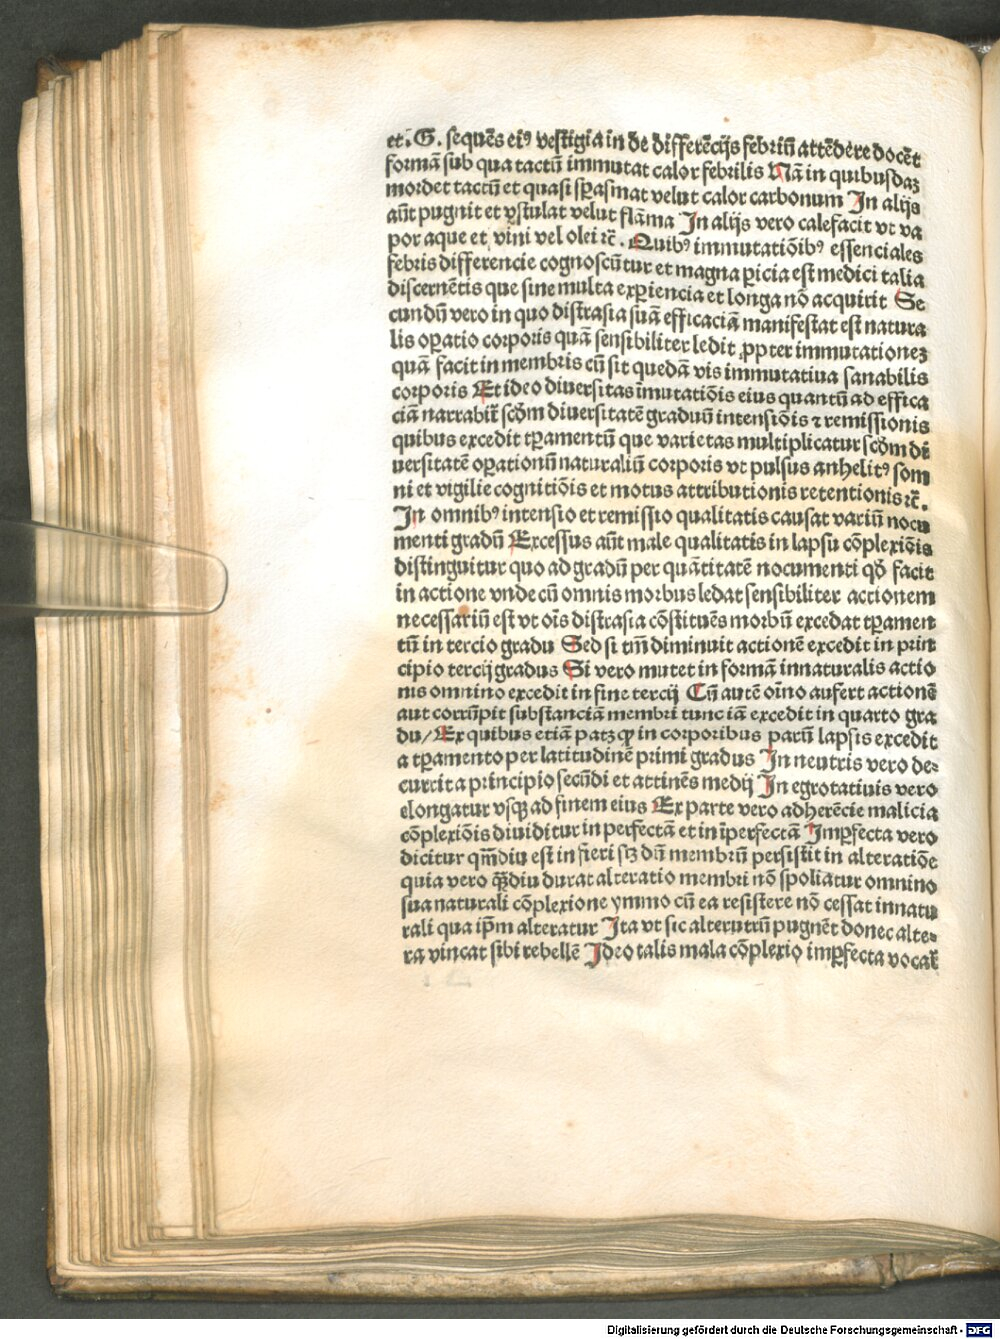 et. G. sequēs eiꝰ vestigia in de differēcijs febriū attēdere docēt
formā sub qua tactū immutat calor febrilis Nā in quibusdaꝫ
mordet tactū et quasi sꝑasmat velut calor carbonum In alijs
aūt pugnit et vstulat velut flāma In alijs vero calefacit vt va
por aque et vini vel olei ⁊c̄. Quibꝰ immutatiōibꝰ essenciales
febris differencie cognoscūtur et magna ꝑicia est medici talia
discernētis que sine multa exꝑiencia et longa nō acquirit Se
cundū vero in quo distrasia suā efficaciā manifestat est natura
lis oꝑatio corporis quā sensibiliter ledit ꝓpter immutationeꝫ
quā facit in membris cū sit quedā vis immutatiua sanabilis
corporis Et ideo diuersitas īmutatiōis eius quantū ad effica
ciā narrabit̄ scd̄m diuersitatē graduū intensiōis ⁊ remissionis
quibus excedit tꝑamentū que varietas multiplicatur scd̄m di
uersitatē oꝑationū naturaliū corporis vt pulsus anhelitꝰ som
ni et vigilie cognitiōis et motus attributionis retentionis ⁊c̄.
In omnibꝰ intensio et remissio qualitatis causat variū nocu
menti gradū Excessus aūt male qualitatis in lapsu cōplexiōis
distinguitur quo ad gradū per quātitatē nocumenti qd̄ facit
in actione vnde cū omnis morbus ledat sensibiliter actionem
necessariū est vt oīs distrasia cōstituēs morbū excedat tꝑamen
tū in tercio gradu Sed si tm̄ diminuit actionē excedit in prin
cipio tercij gradus Si vero mutet in formā innaturalis actio
nis omnino excedit in fine tercij Cū autē oīno aufert actionē
aut corrūpit substanciā membri tunc iā excedit in quarto gra
du/ Ex quibus etiā patꝫ ꝙ in corporibus parū lapsis excedit
a tꝑamento per latitudinē primi gradus In neutris vero de⸗
currit a principio secūdi et attinēs medij In egrotatiuis vero
elongatur vsqꝫ ad finem eius Ex parte vero adherēcie malicia
cōplexiōis diuiditur in perfectā et in īperfectā Imꝑfecta vero
dicitur qm̄diu est in fieri sꝫ dū membrū persistit in alteratiōe
quia vero qm̄diu durat alteratio membri nō spoliatur omnino
sua naturali cōplexione ymmo cū ea resistere nō cessat innatu
rali qua ip̄m alteratur Ita vt sic alterutrū pugnēt donec alte⸗
ra vincat sibi rebellē Ideo talis mala cōplexio imꝑfecta vocat̄
Digitalisierung gefördert durch die Deutsche Forschungsgemeinschaft - DFG